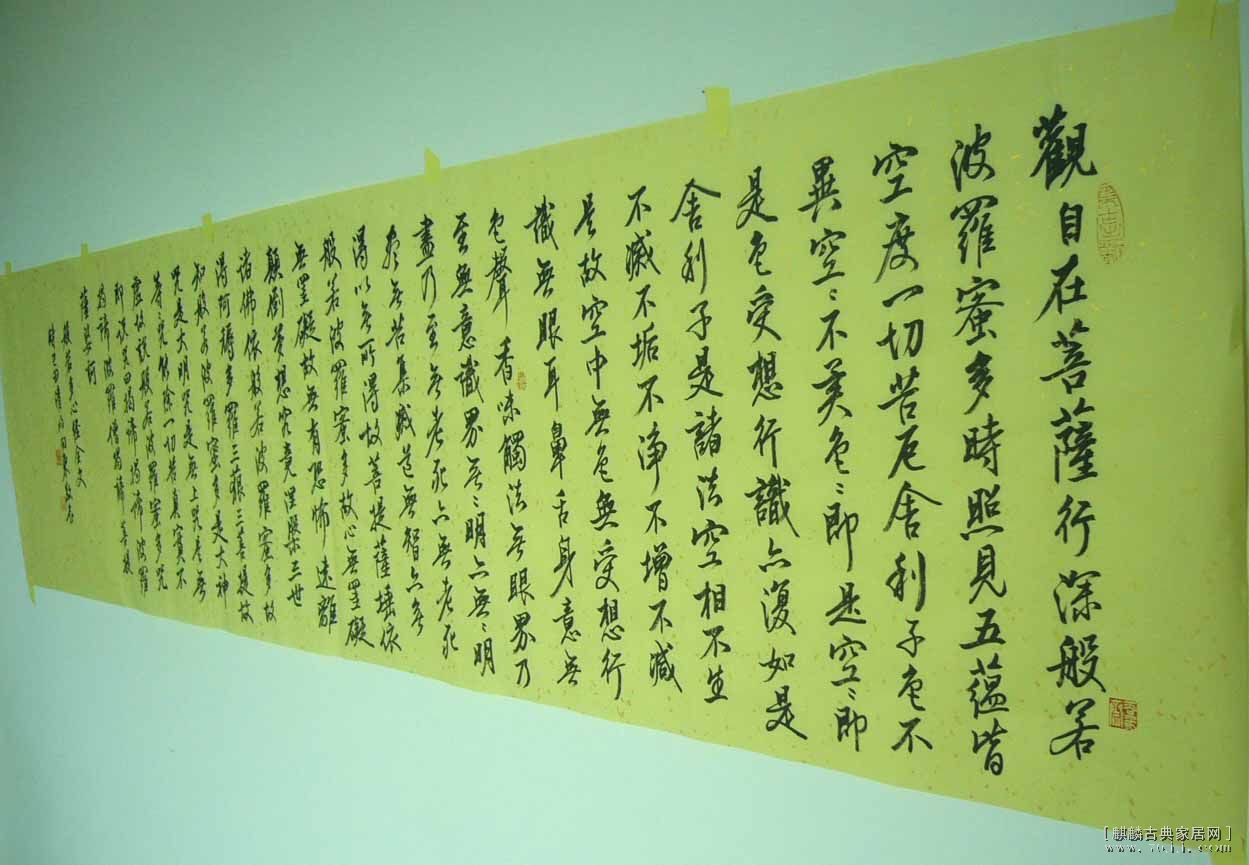 觀自在菩薩行深般若
波羅蜜多時照見五蘊皆
空度一切苦厄舍利子色不
異空〻不异色〻即是空〻即
是色受想行識亦復如是
舍利子是諸法空相不生
不滅不垢不淨不增不減
是故空中無色無受想行
識無眼耳鼻舌身意無
色聲香味觸法無眼界乃
至無意識界無〻明亦無〻明
盡乃至無老死亦無老死
盡無苦集滅道無智亦無
得以無所得故菩提薩埵依
般若波羅蜜多故心無罣礙
無罣礙故無有恐怖遠離
顛倒夢想究竟涅槃三世
諸佛依般若波羅蜜多故
得阿耨多羅三藐三菩提故
知般若波羅蜜多是大神
咒是大明咒是無上咒是無
等〻咒能除一切苦真實不
虛故說般若波羅蜜多咒
即說咒曰揭諦揭諦波羅
揭諦波羅僧揭諦菩提
薩婆訶
般若多心經全文
[麒麟古典家居网]